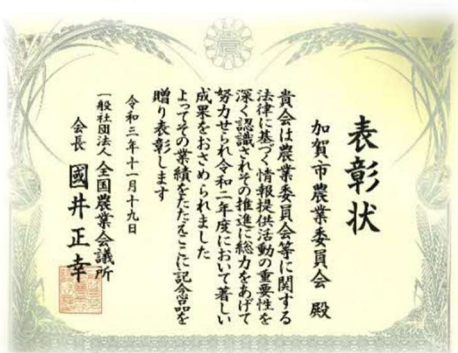 表彰状
加賀市農業委員会 殿
貴会は農業委員会等に関する
法律に基づく情報提供活動の重要性を
深く認識されその推進に総力をあげて
努力せられ令和二年度において著しい
成果をおさめられました
よってその業績をたたえここに記念品を
贈り表彰します
令和三年十一月十九日
一般社団法人全国農業会議所
会長 國井正幸